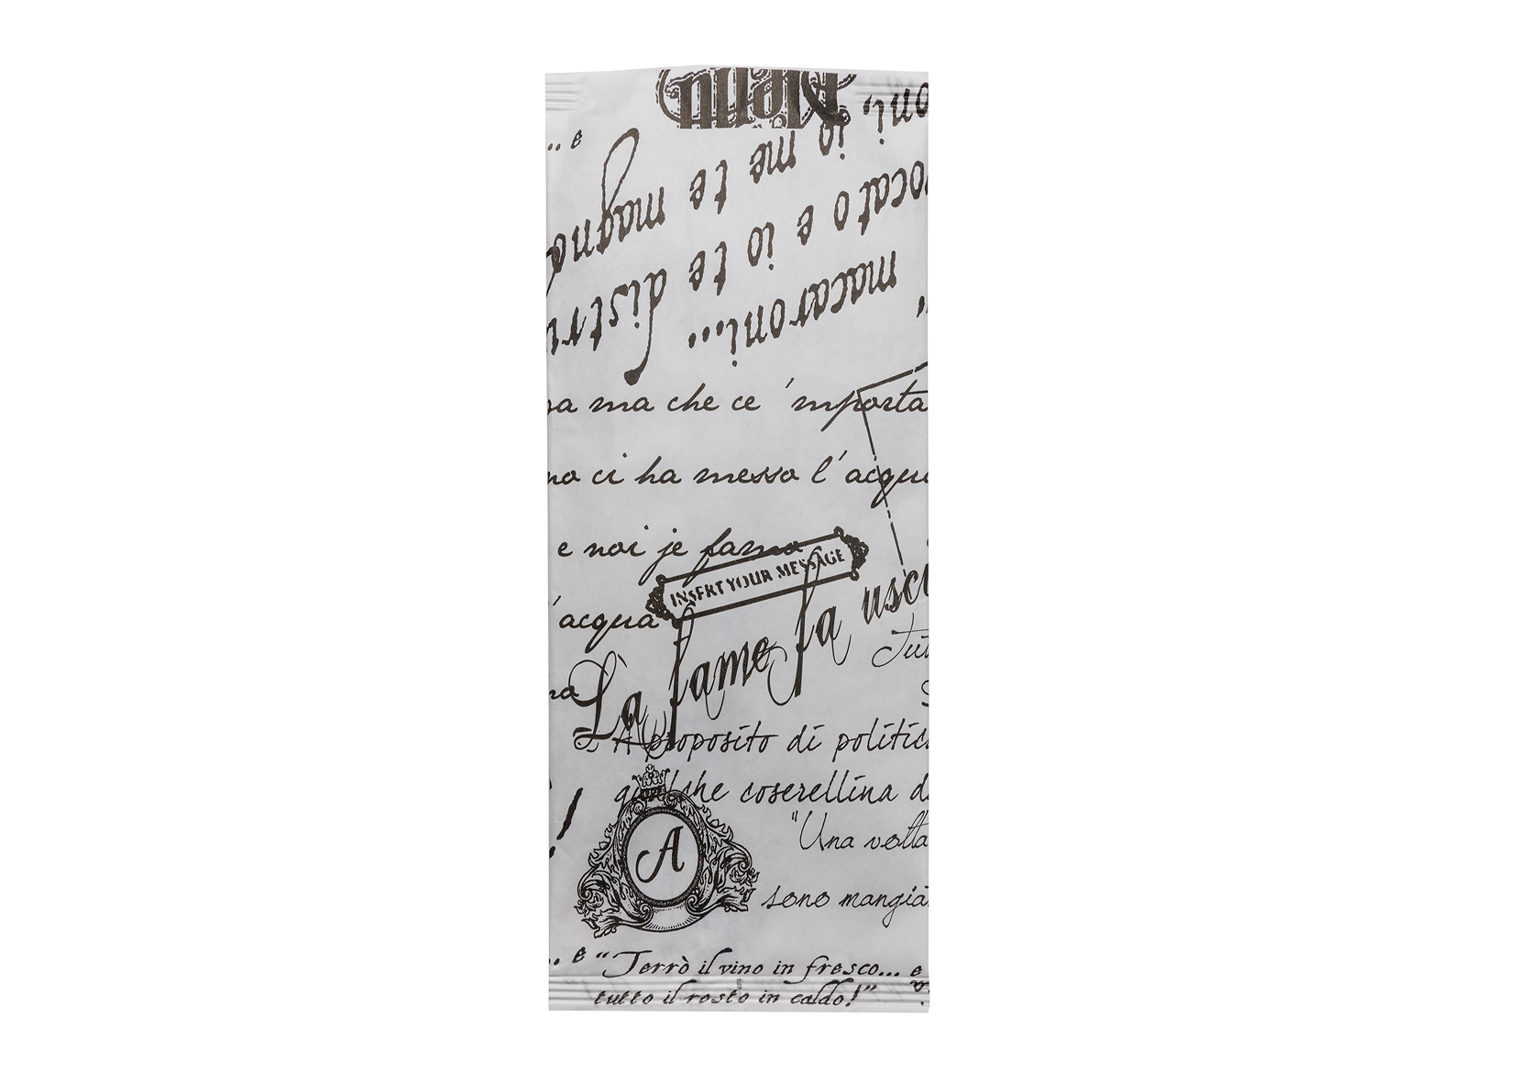 Menu
...e
io me te magno
ocato e io te distru
macaroni...
ma che ce 'mporta
ci ha messo l'acqu
e noi je famo
INSERT YOUR MESSAGE
'acqua
La fame fa usci
A proposito di politic
qualche coserellina d
"Una volta
A
sono mangia
..e "Terrò il vino in fresco... e
tutto il resto in caldo!"